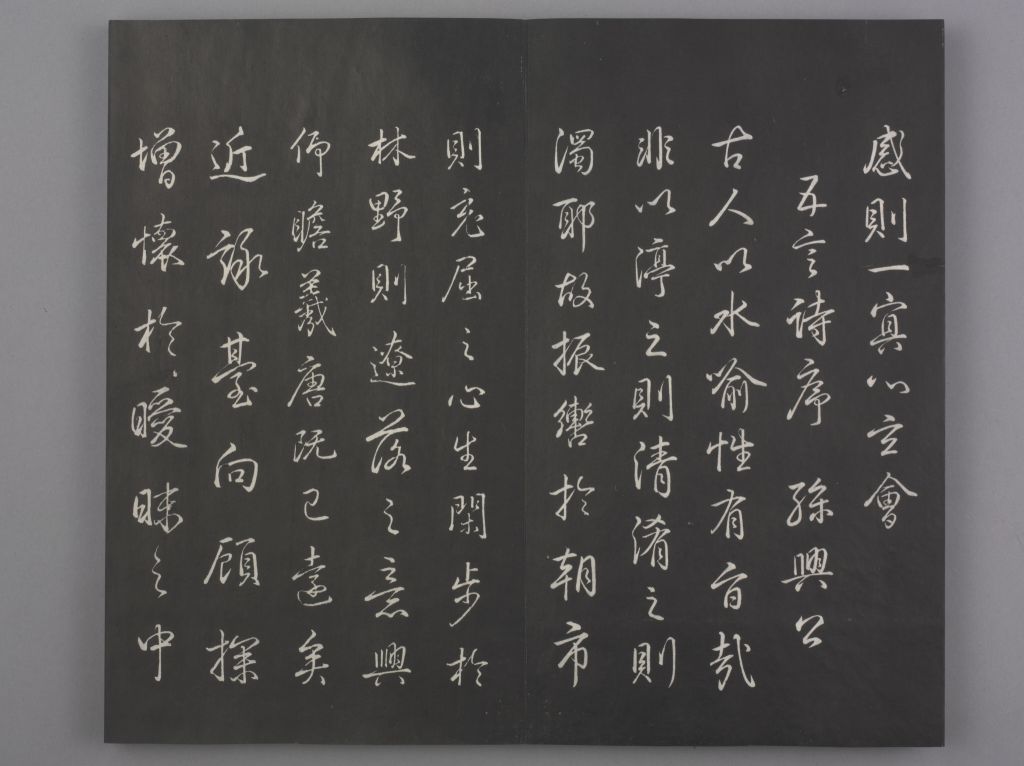 感則一寘心立會
五言詩序 孫興公
古人以水喻性有旨哉
非以渟之則清淆之則
濁耶故振轡於朝市
則充屈之心生閑步於
林野則遼落之意興
仰瞻羲唐既已遠矣
近詠臺向顧探
增懷於曖昧之中